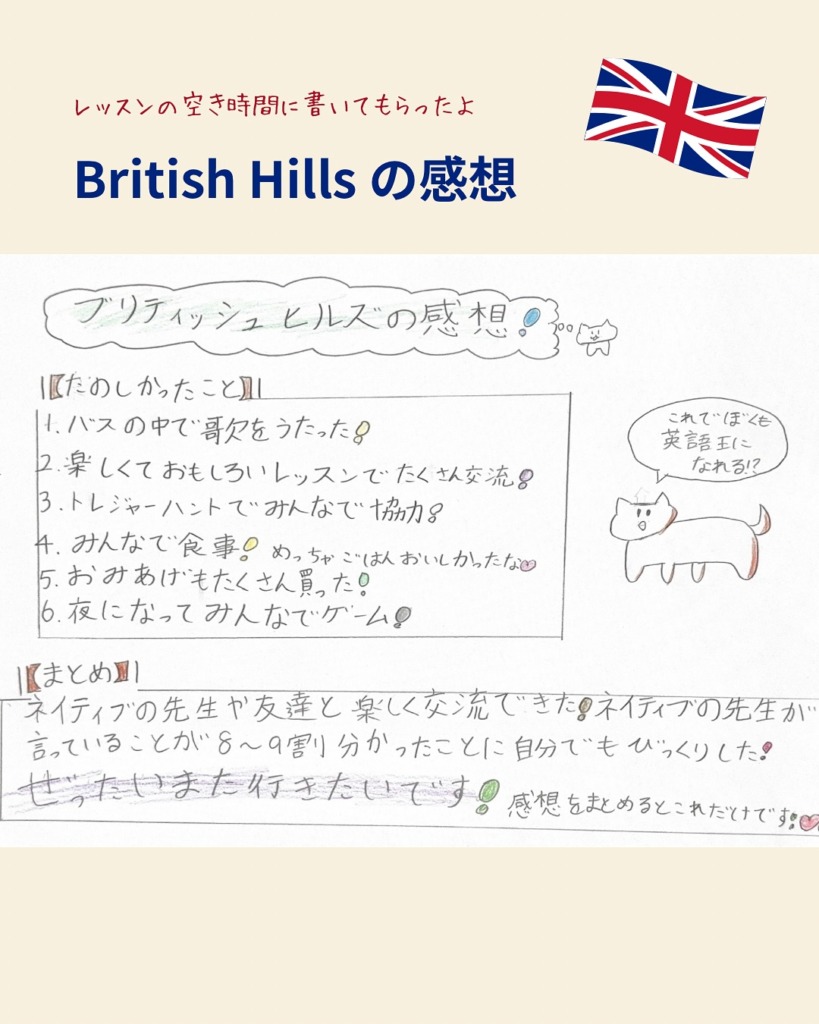 レッスンの空き時間に書いてもらったよ
British Hills の感想
ブリティッシュヒルズの感想!
【たのしかったこと】
1. バスの中で歌をうたった!
2. 楽しくておもしろいレッスンでたくさん交流!
3. トレジャーハントでみんなで協力!
4. みんなで食事! めっちゃごはんおいしかったな♡
5. おみあげもたくさん買った!
6. 夜になってみんなでゲーム!
これでぼくも
英語王に
なれる!?
【まとめ】
ネイティブの先生や友達と楽しく交流できた!ネイティブの先生が
言っていることが8〜9割分かったことに自分でもびっくりした!
ぜったいまた行きたいです! 感想をまとめるとこれだけです!♡